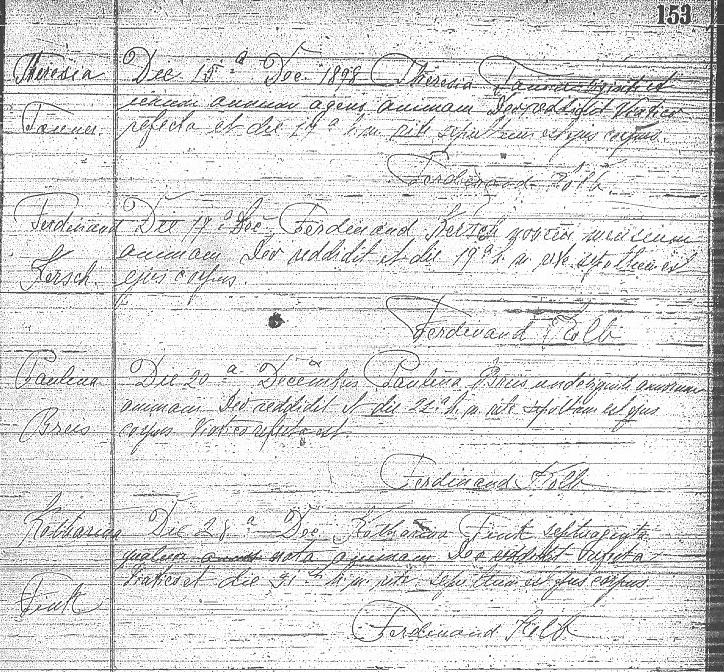 153
Theresia
Tanner.
Die 15ª Dec. 1898 Theresia Tanner viginti et
annum agens animam Deo reddidit Viatico
refecta et die 17ª h. m. rite sepultum est ejus corpus.
Ferdinand Kolb.
Ferdinand
Kersch.
Die 17ª Dec. Ferdinand Kersch mensium
animam Deo reddidit et die 19ª h. m. rite sepultum est
ejus corpus.
Ferdinand Kolb
Paulina
Breis
Die 20ª Decembris Paulina Breis annorum
animam Deo reddidit et die 22ª h. m. rite sepultum est ejus
corpus Viatico refecta est.
Ferdinand Kolb
Katharina
Fink
Die 28ª Dec. Katharina Fink septuaginta
quatuor nata animam Deo reddidit refecta
Viatico et die 31ª h. m. rite sepultum est ejus corpus.
Ferdinand Kolb